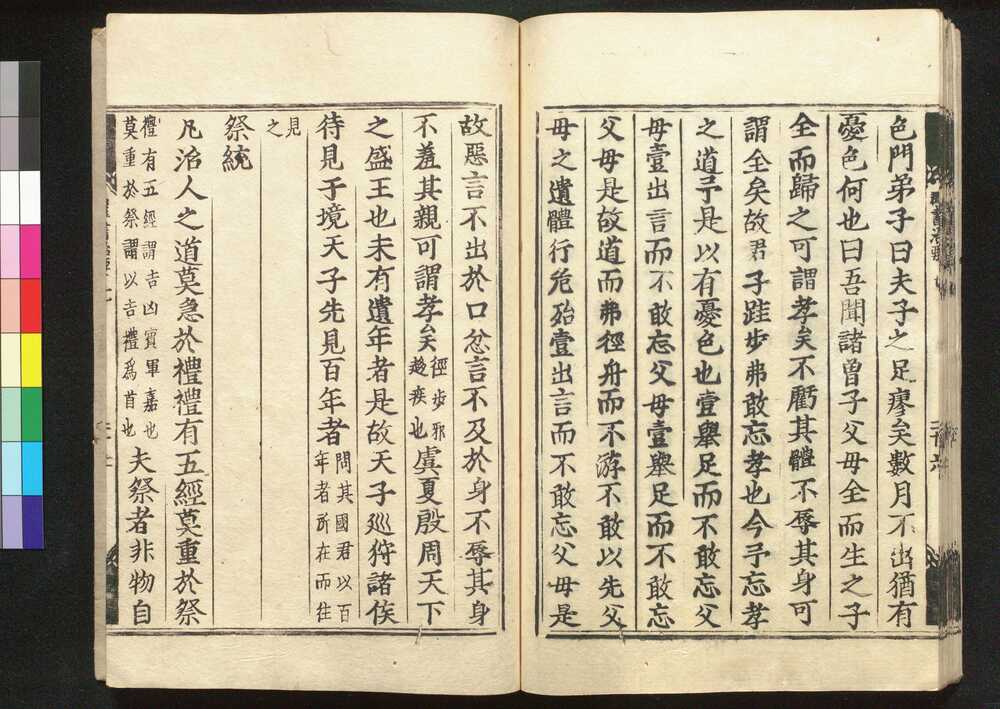 色門弟子曰夫子之足瘳矣數月不出猶有
憂色何也曰吾聞諸曾子父母全而生之子
全而歸之可謂孝矣不虧其體不辱其身可
謂全矣故君子跬步弗敢忘孝也今予忘孝
之道予是以有憂色也壹舉足而不敢忘父
母壹出言而不敢忘父母壹舉足而不敢忘
父母是故道而弗徑舟而不游不敢以先父
母之遺體行危殆壹出言而不敢忘父母是
故惡言不出於口忿言不及於身不辱其身
不羞其親可謂孝矣徑步邪趍疾也虞夏殷周天下
之盛王也未有遺年者是故天子廵狩諸侯
待見于境天子先見百年者問其國君以百年者所在而往
見之
祭統
凡治人之道莫急於禮禮有五經莫重於祭
禮有五經謂吉凶賓軍嘉也莫重於祭謂以吉禮爲首也夫祭者非物自